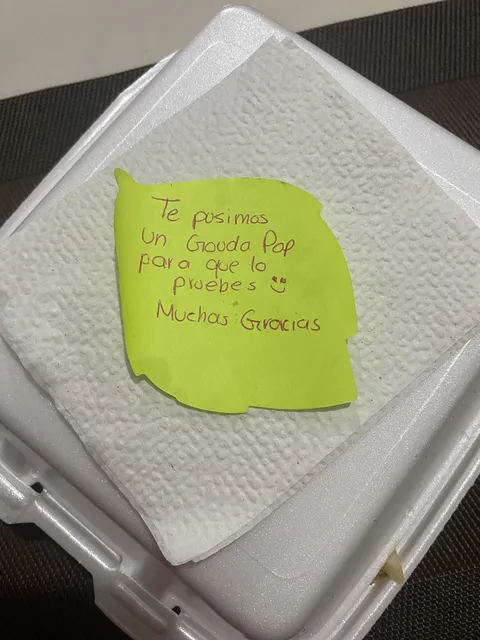 Te pusimos
un Gouda Pop
para que lo
pruebes :)
Muchas Gracias